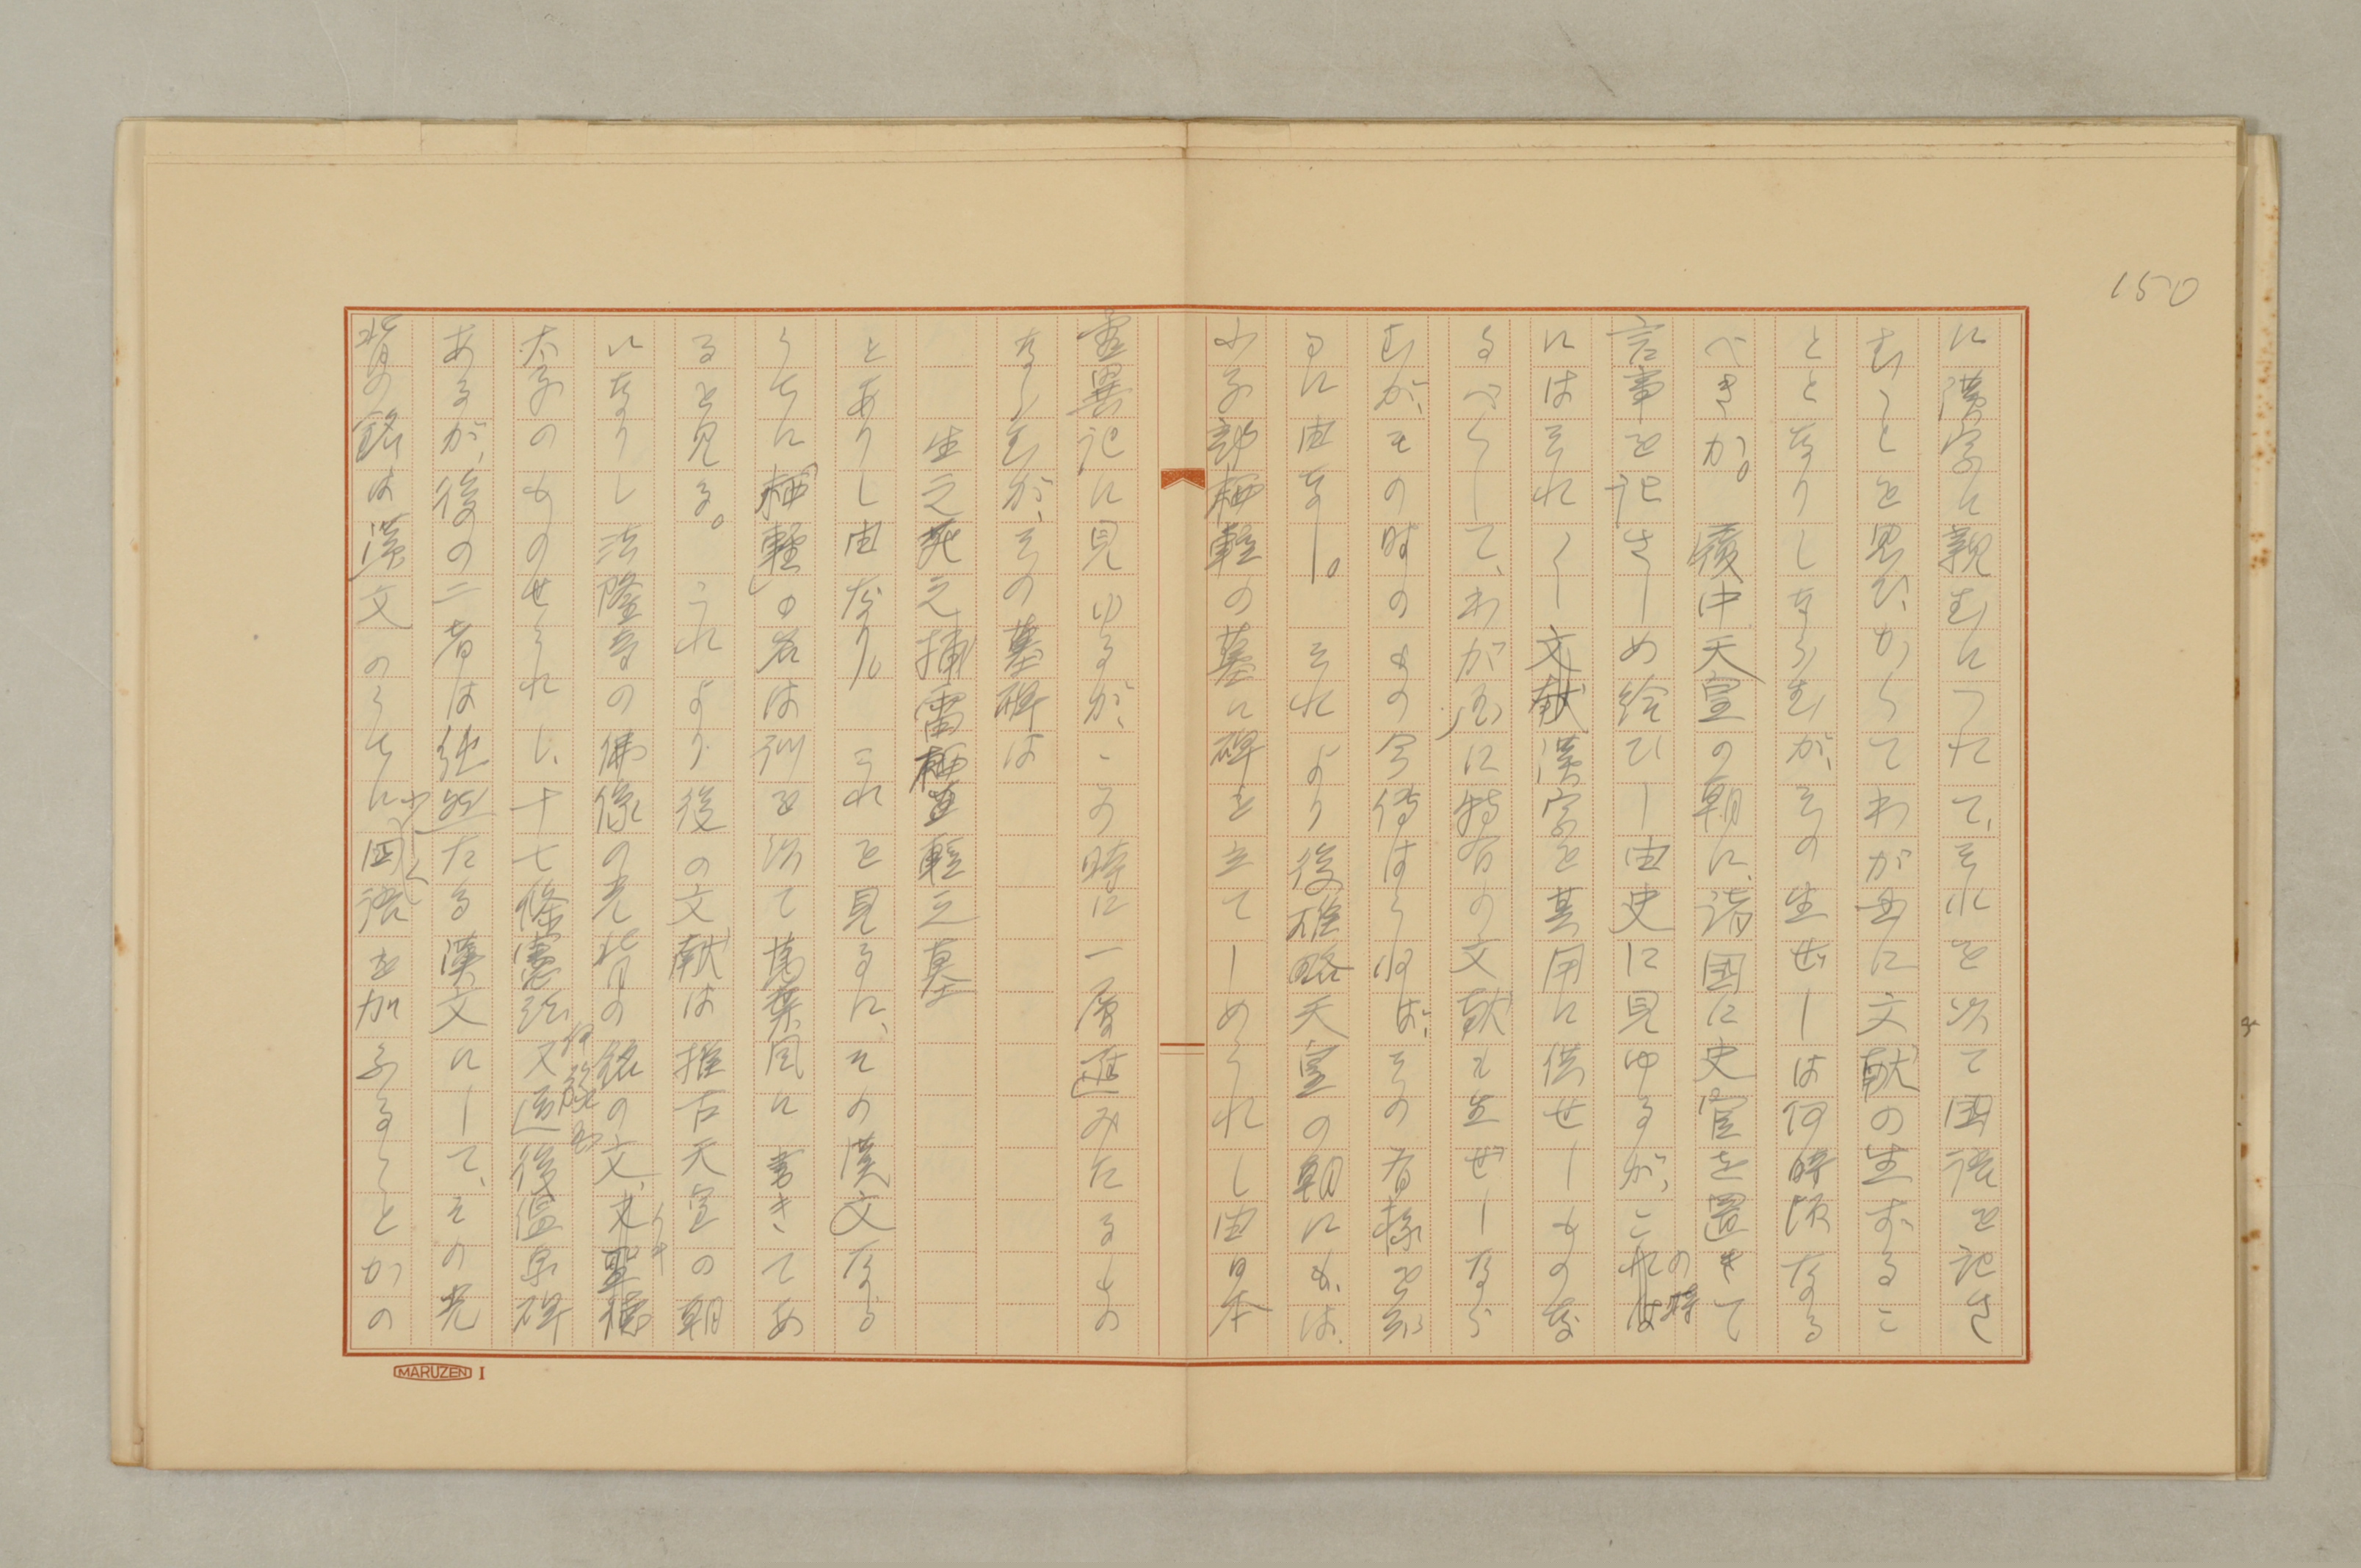 150
に漢字に親むにつれて、それを以て国語を記さ
むことを思ひ、かくてわが国に文献の生ずるこ
ととなりしならむが、その生ぜしは何時頃なる
べきか。履中天皇の朝に、諸国に史官を置きて
言事を記さしめ給ひし由史に見ゆるが、この時
にはそれらし文献漢字を其用に供せしものなる
るべくして、わが国に特有の文献も生ぜしなら
むが、その時のもの今傳はらねば、その有様を知
るに由なし。それより後雄略天皇の朝にかは、
小子部栖軽の墓に碑を立てしめられし由日本
霊異記に見ゆるが、この時に一層進みたるもの
ならむが、その墓碑は
生之死之捕雷栖軽之墓
とありし由なり。これを見るに、その漢文なる
うちに「栖軽」の名は訓を以て萬葉風に書きてあ
るを見る。これより後の文献は推古天皇の朝
になりし法隆寺の佛像の光背の銘の文、又聖徳
太子のものせられし、十七條憲法又道後温泉碑
あるが、後の二者は純然たる漢文にして、その光
背の銘は漢文のうちに少しく国語を加ふることかの
MARUZEN I